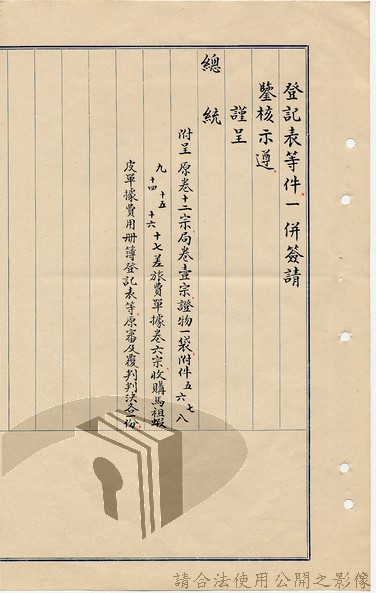 登記表等件一併簽請
鑒核示遵
謹呈
總統
附呈原卷十二宗局卷壹宗證物一袋附件五六七八
九十四十五十六十七差旅費單據卷六宗收購馬祖蝦
皮單據費用冊簿登記表等原審及覆判判決各一份
請合法使用公開之影像